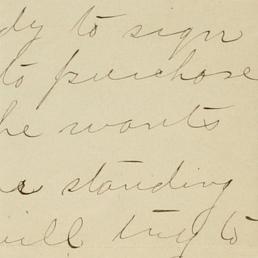 dy to sign
to purchase
he wants
standing
will try to